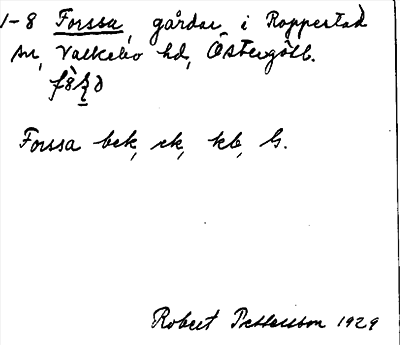 1-8 Forssa, gårdar i Rappestad
sn, Valkebo hd, Östergötl.
Forssa bek, ek, kb, ls.
Robert Pettersson 1929